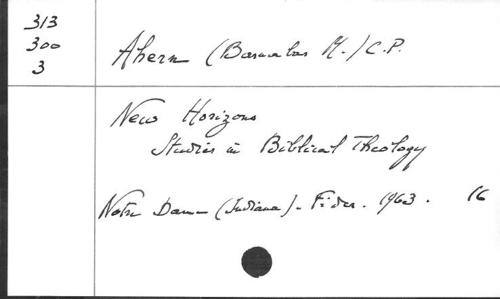 313
300
3
Ahern (Barnabas M.) C.P.
New Horizons
Studies in Biblical Theology
Notre Dame (Indiana). Fides. 1963. 16